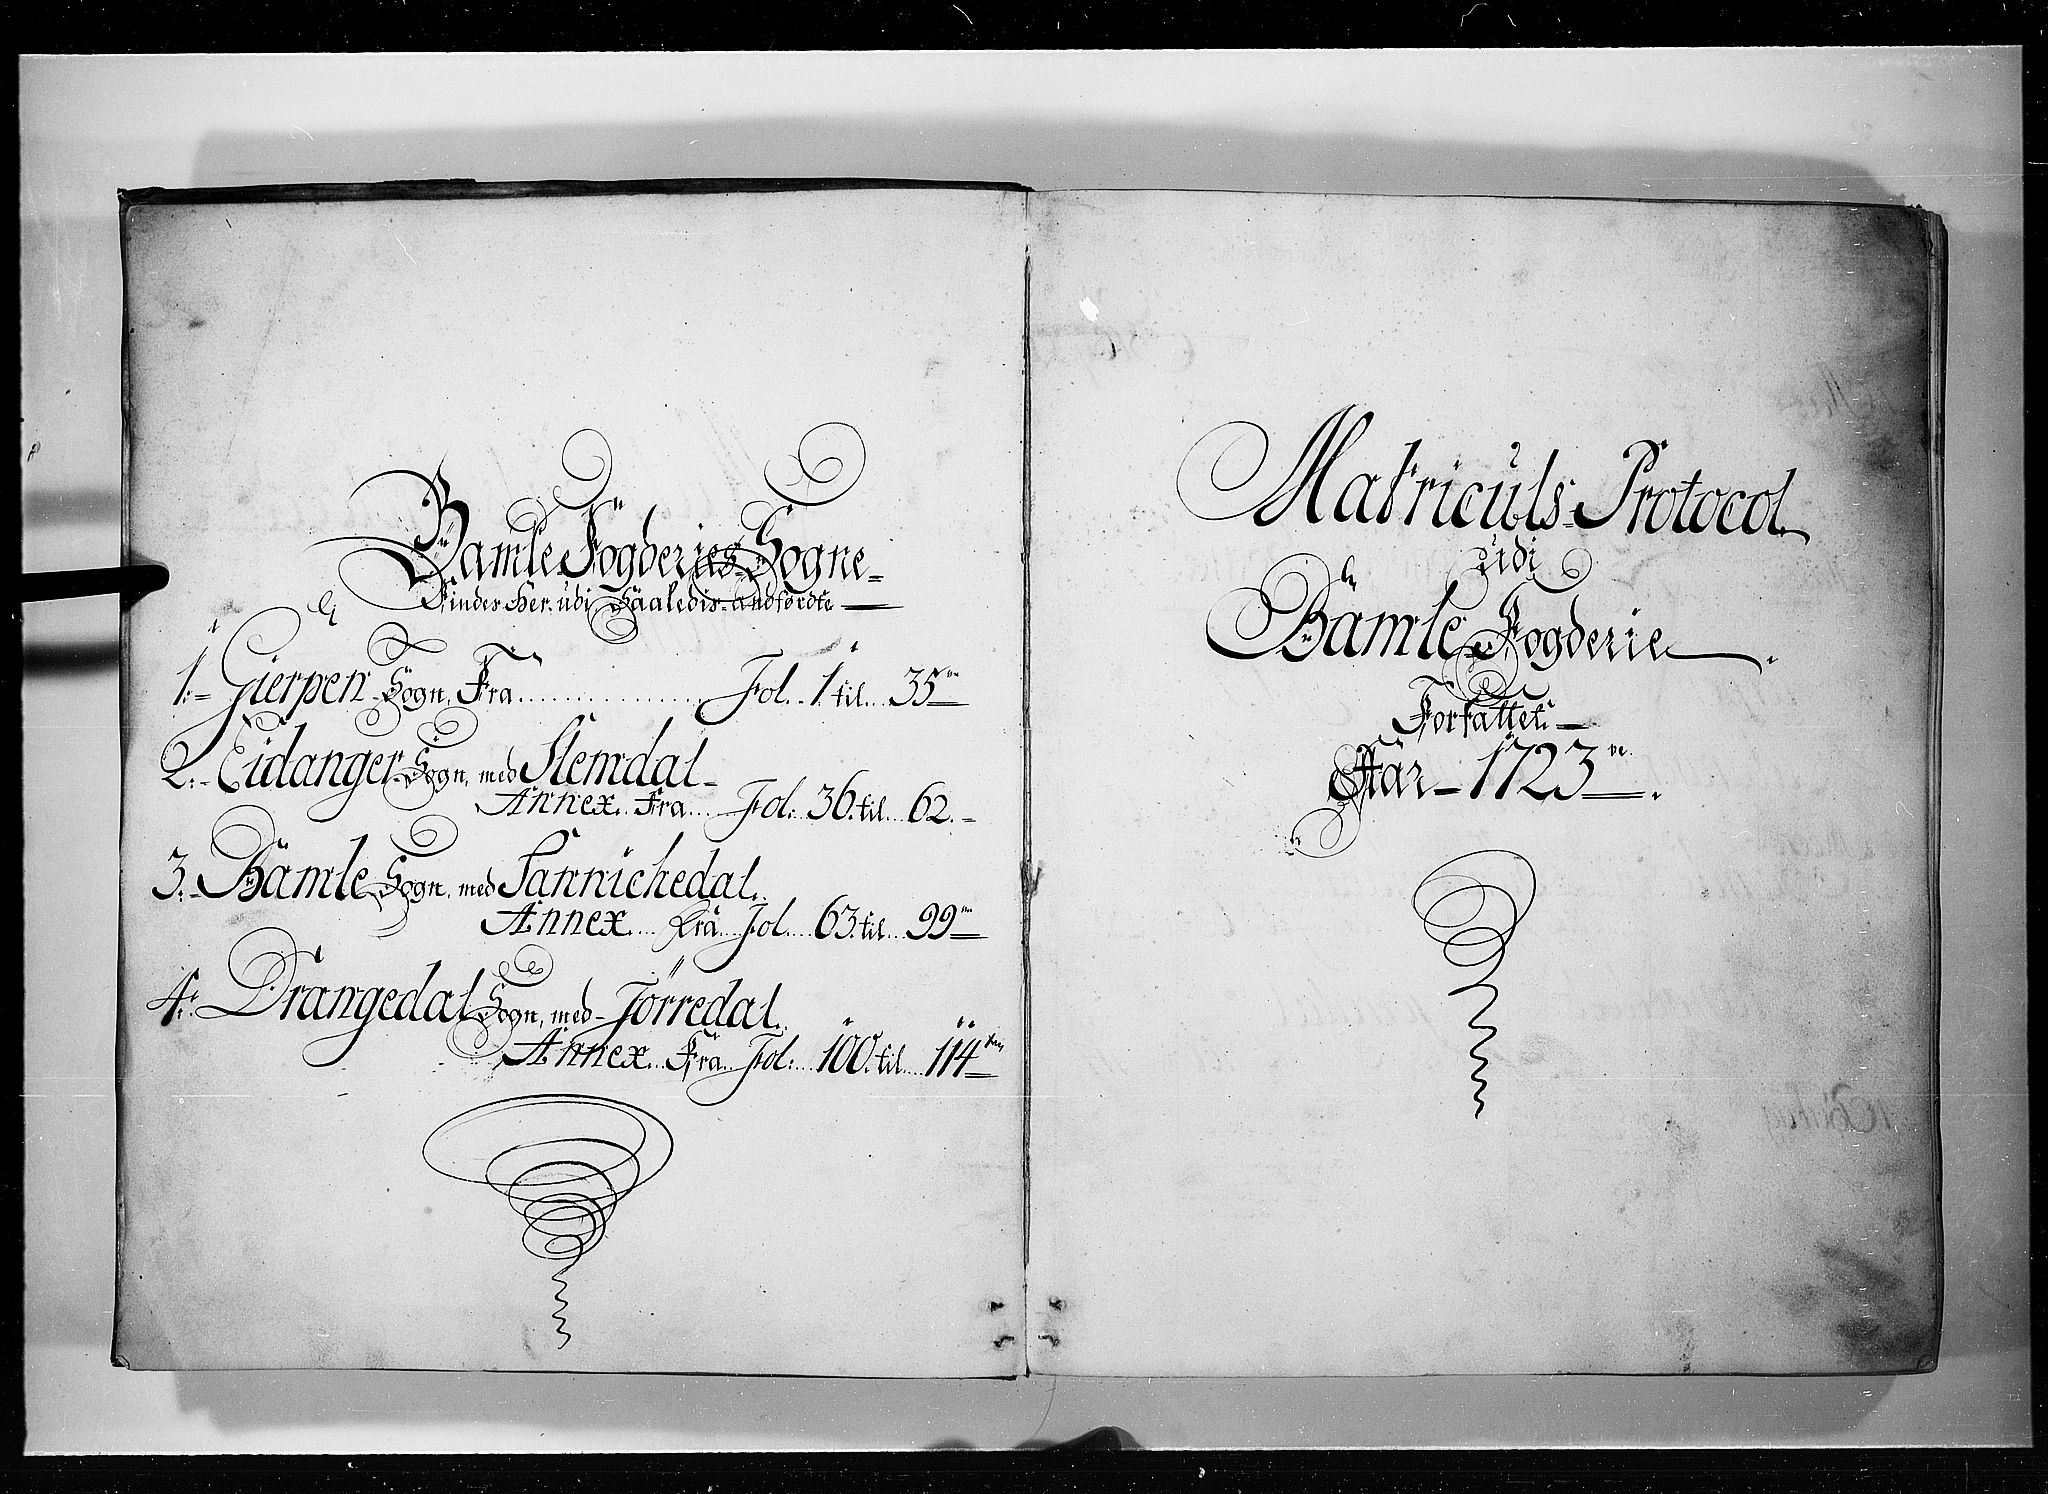 Bamle Fogderies Sogne
Findes Her udi Saaledis andførdte
1. Gierpen Sogn, Fra ................ Fol. 1 til 35
2. Eidanger Sogn, med Slemdal
Annex. Fra Fol: 36. til 62.
3. Bamle Sogn, med Sannichedal.
Annex Fra Fol. 63. til 99
4. Drangedal Sogn, med Törredal.
Annex Fra Fol: 100. til 114
Matriculs-Protocol
udi
Bamle Fogderie.
Forfattet
Aar 1723